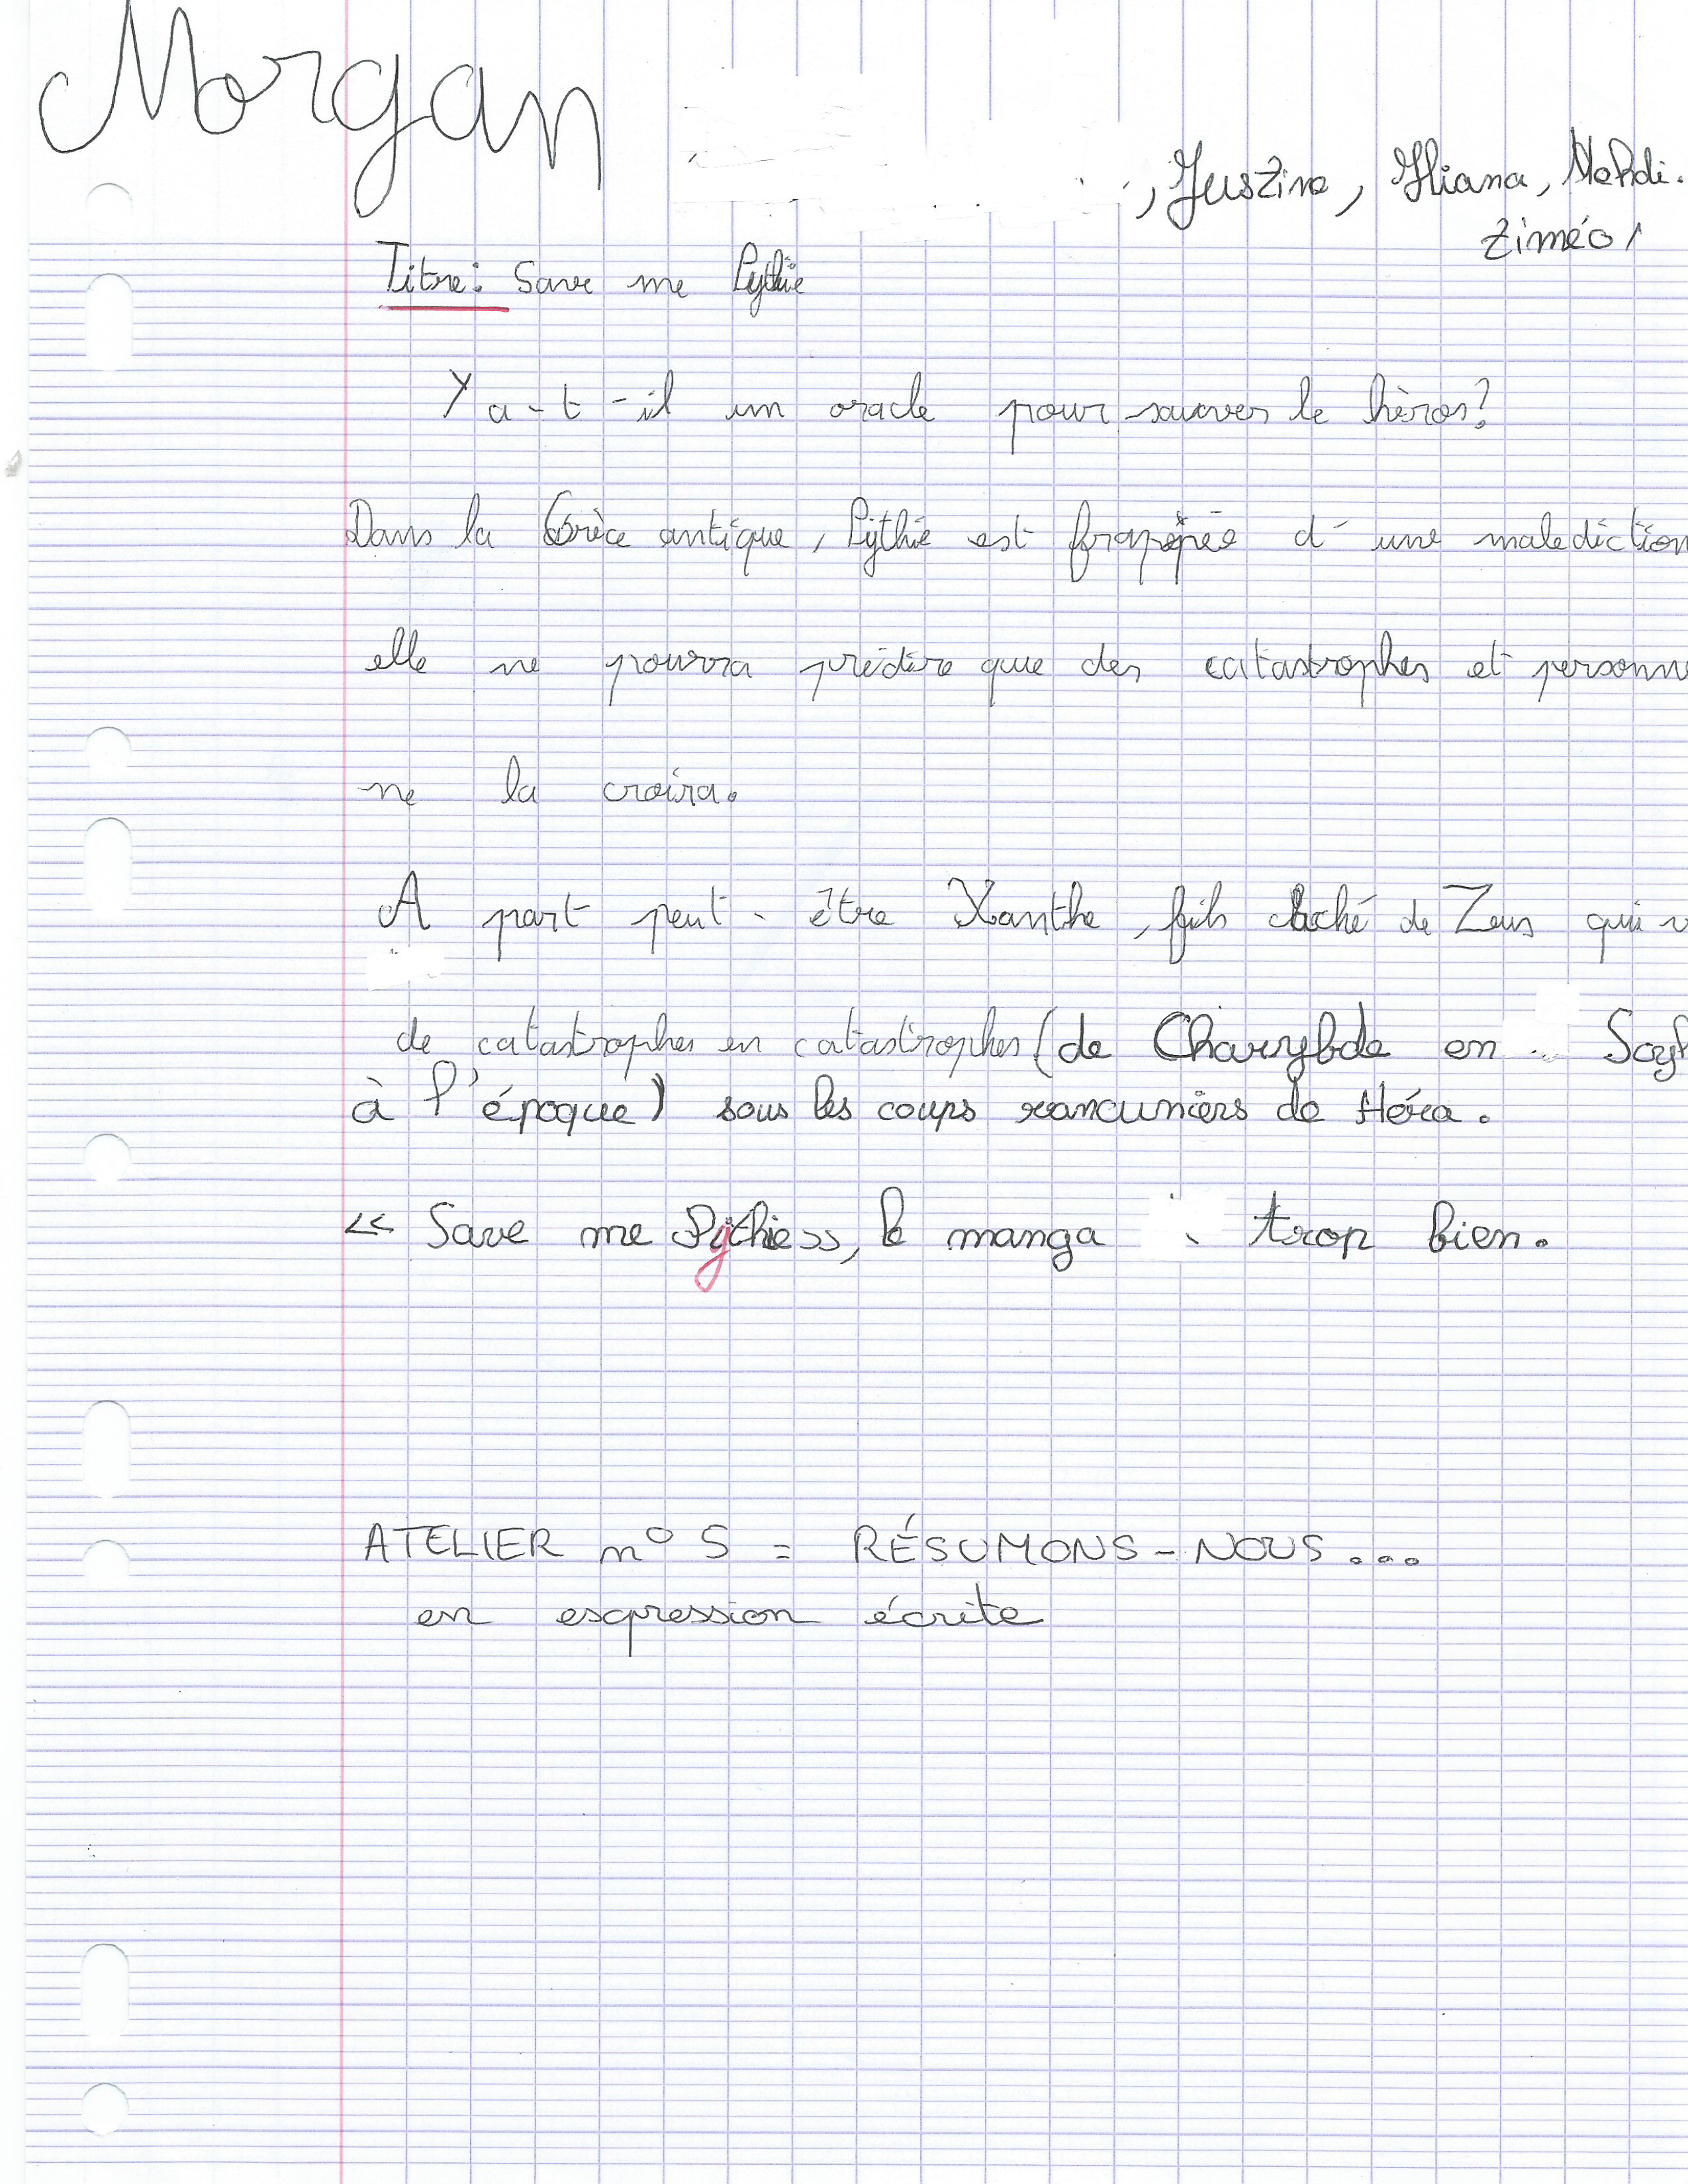 Morgan
, Juszine, Iliana, Mehdi.
Ziméo,
Titre: Save me Pythie
Y a-t-il un oracle pour sauver le héros?
Dans la Grèce antique, Pythie est frappée d'une malediction
elle ne pourra prédire que des catastrophes et personne
ne la croira.
A part peut-être Xanthe, fils caché de Zeus qui v
de catastrophes en catastrophes (de Charybde en Scyl
à l'époque) sous les coups rancuniers de Héra.
<< Save me Pythie >>, le manga trop bien.
ATELIER n° 5 = RÉSUMONS-NOUS...
en expression écrite